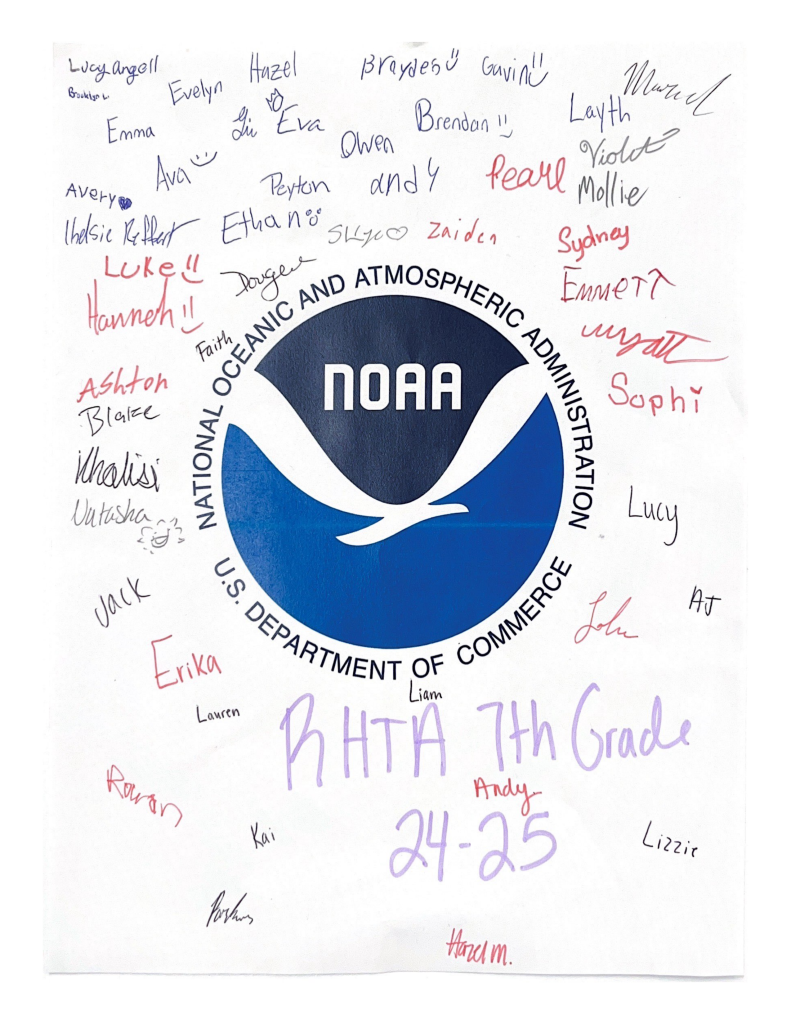 Lucy Angell
Hazel
Brayden
Gavin
Evelyn
Brooklyn L
Layth
Emma
Eva
Brendan
Owen
Violet
Ava
Peyton
andy
Pearl
Mollie
Avery
Ethan
Skye
Zaiden
Sydney
LUKE
Emmett
Hannah
Faith
wyatt
Ashton
Sophi
Blake
Khalisi
Natasha
Lucy
Jack
AJ
John
Erika
NATIONAL OCEANIC AND ATMOSPHERIC ADMINISTRATION
NOAA
U.S. DEPARTMENT OF COMMERCE
Liam
Lauren
RHTA 7th Grade
Rowan
Andy
24-25
Kai
Lizzie
Hazel M.